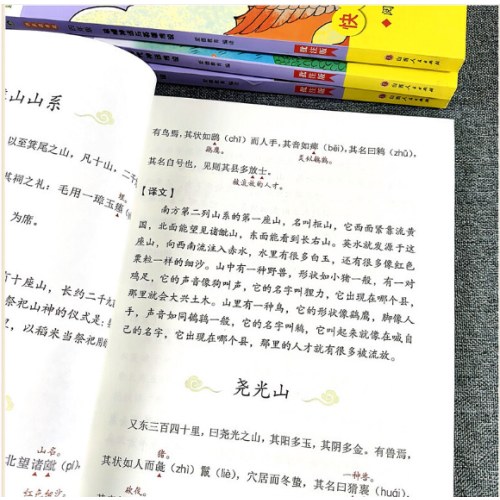 快
阅
批注版
批注版
批注版
山山系
以至箕尾之山，凡十山，二千
其祠之礼：毛用一璋玉瘗
为席。
十座山，长约二千九
祭祀山神的仪式是：
以稻米当祭祀用
山名。
北望诸𣬈（pí）
有鸟焉，其状如鸱（chī）而人手，其音如痺（bēi），其名曰鴸（zhū），
鹞鹰。
其名自号也，见则其县多放士。
被流放的人才。
【译文】
南方第二列山系的第一座山，名叫柜山，它西面紧靠流黄
国，北面能望见诸𣬈山，东面能看到长右山。英水就发源于这
座山，向西南流注入赤水，水里有很多白玉，还有很多像红色
粟粒一样的细沙。山中有一种野兽，形状如小猪一般，有一对
鸡足，它的声音像狗叫声，它的名字叫狸力，它出现在哪个县，
那里就会大兴土木。山里有一种鸟，它的形状像鹞鹰，脚像人
手，声音如同鹌鹑一般，它的名字叫鴸，它叫起来就像在喊自
己的名字，它出现在哪个县，那里的人才就有很多被流放。
尧光山
又东三百四十里，曰尧光之山，其阳多玉，其阴多金。有兽焉，
猪。
一种兽。
其状如人而彘（zhì）鬣（liè），穴居而冬蛰，其名曰猾褢（huái），